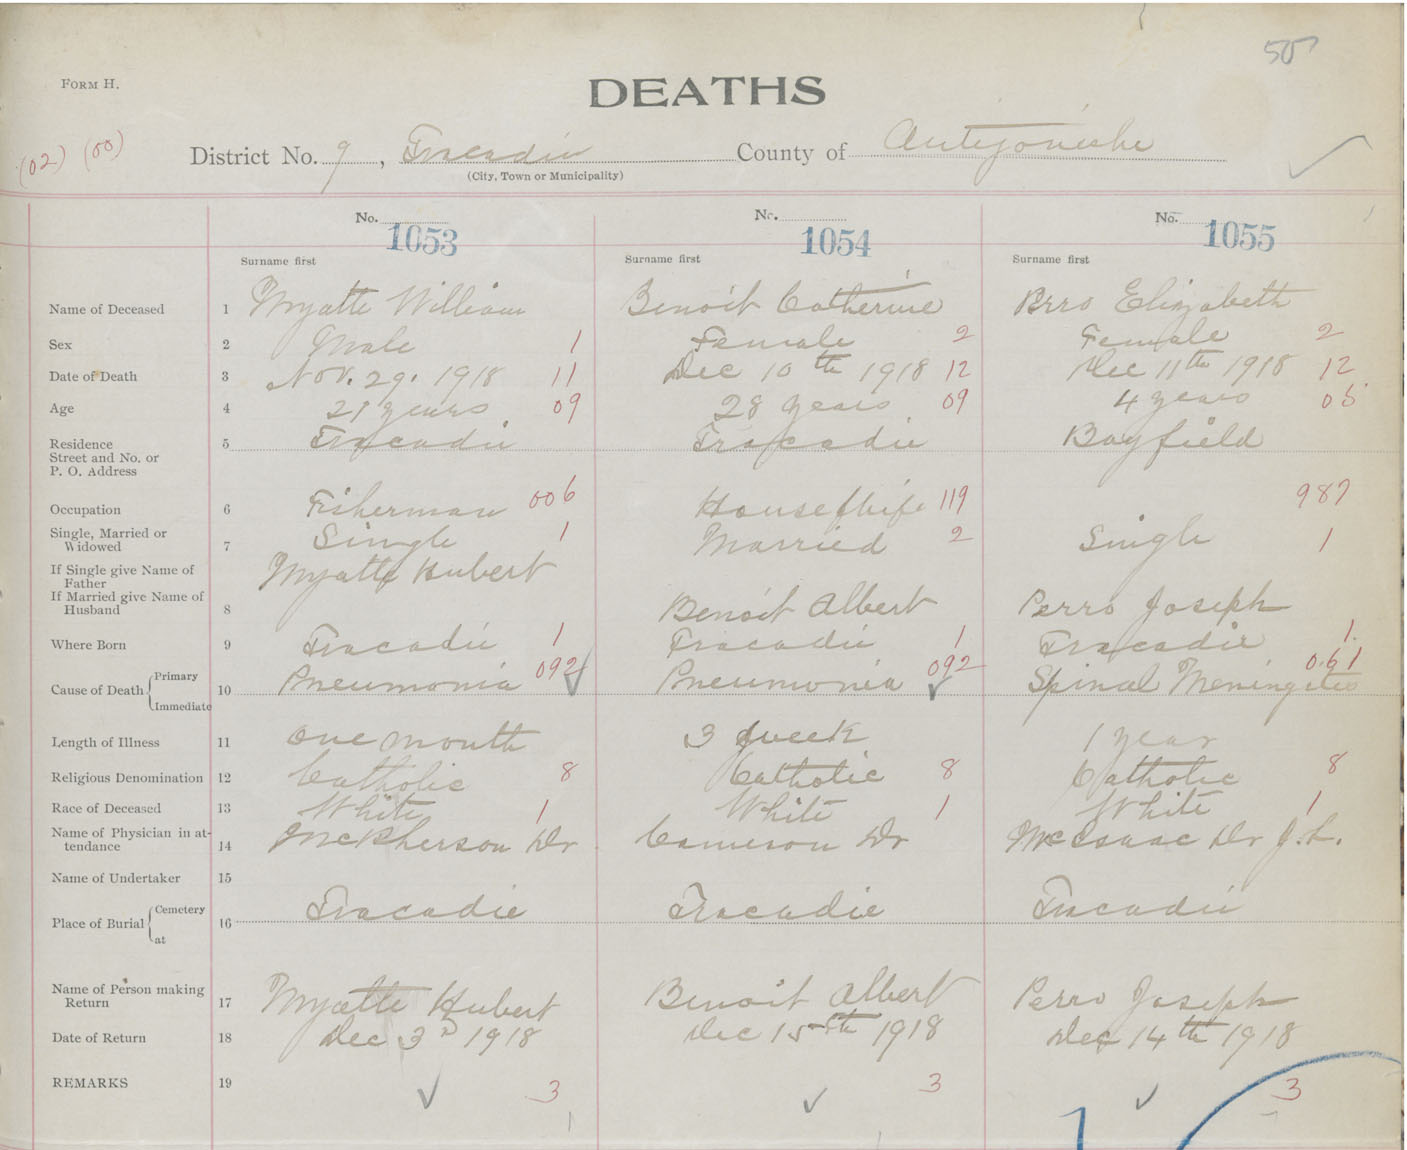 50
FORM H.
DEATHS
(02) (00)
District No. 9, Tracadie County of Antigonishe
(City, Town or Municipality)
No. 1053 No. 1054 No. 1055
Surname first Surname first Surname first
Name of Deceased 1 Myatte William Benoit Catherine Perro Elizabeth
Sex 2 Male 1 Female 2 Female 2
Date of Death 3 Nov. 29. 1918 11 Dec 10th 1918 12 Dec 11th 1918 12
Age 4 21 years 09 28 years 09 4 years 05
Residence 5 Tracadie Tracadie Bayfield
Street and No. or
P. O. Address
Occupation 6 Fisherman 006 Housewife 119 987
Single, Married or
Widowed 7 Single 1 Married 2 Single 1
If Single give Name of
Father Myatte Hubert
If Married give Name of
Husband 8 Benoit Albert Perro Joseph
Where Born 9 Tracadie 1 Tracadie 1 Tracadie 1
Cause of Death Primary 10 Pneumonia 092 Pneumonia 092 Spinal Meningites 061
Immediate
Length of Illness 11 One month 3 week 1 year
Religious Denomination 12 Catholic 8 Catholic 8 Catholic 8
Race of Deceased 13 White 1 White 1 White 1
Name of Physician in at-
tendance 14 McPherson Dr Cameron Dr McIsaac Dr J.L.
Name of Undertaker 15
Place of Burial Cemetery 16 Tracadie Tracadie Tracadie
at
Name of Person making
Return 17 Myatte Hubert Benoit Albert Perro Joseph
Date of Return 18 Dec 3rd 1918 Dec 15th 1918 Dec 14th 1918
REMARKS 19 3 3 3